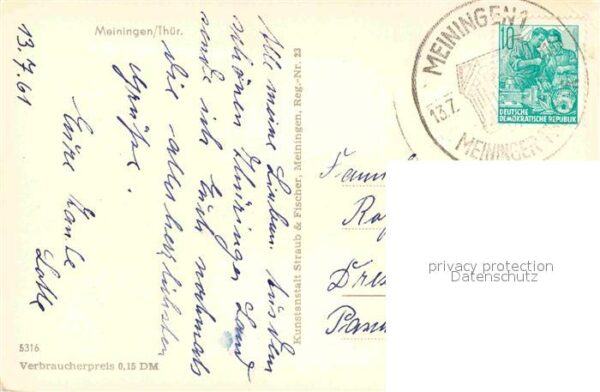 Meiningen/Thür.
13.7.61
Alle meine Lieben! Aus dem
schönen Thüringer Land
sende ich Euch nochmals
die allerherzlichsten
Grüße.
Eure Tante
Lotte
5316
Verbraucherpreis 0,15 DM
Kunstanstalt Straub & Fischer, Meiningen, Reg.-Nr. 23
MEININGEN 1
13.7.
MEININGER
10
DEUTSCHE
DEMOKRATISCHE REPUBLIK
Fam
Dres
privacy protection
Datenschutz